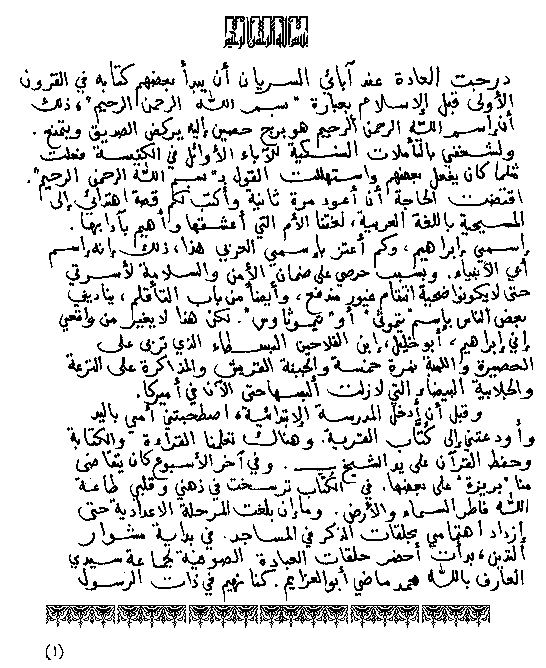 بسم الله الرحمن الرحيم
درجت العادة عند آبائي السريان أن يبدأ بعضهم كتابه في القرون
الأولى قبل الإسلام بعبارة "بسم الله الرحمن الرحيم"، ذلك
أن اسم الله الرحمن الرحيم هو برج حصين إليه يركض الصديق ويتمنع.
ولشغفي بالتأملات النسكية للآباء الأوائل في الكنيسة فعلت
مثلما كان يفعل بعضهم واستهللت القول بـ "بسم الله الرحمن الرحيم".
اقتضت الحاجة أن أعود مرة ثانية وأكتب لكم قصة اهتدائي إلى
المسيحية باللغة العربية، لغتنا الأم التي أعشقها وأهيم بآدابها.
إسمي إبراهيم، وكم أعتز بإسمي العربي هذا، ذلك بإنه إسم
أبي الأنبياء. وبسبب حرصي على ضمان الأمن والسلامة لأسرتي
حتى لا يكونوا ضحية انتقام غيور مندفع، وأيضاً من باب التأقلم، يناديني
بعض الناس بإسم "تيموثي" أو "تيموثاوس". لكن هذا لا يغير من واقعي
إني إبراهيم، أبو خليل، إبن الفلاحين البسطاء الذي تربى على
الحصيرة واللمبة نمرة خمسة والجبنة القريش والمذاكرة على الترعة
والجلابية البيضاء التي لازلت ألبسها حتى الآن في أميركا.
وقبل أن أدخل المدرسة الإبتدائية، اصطحبتني أمي باليد
وأودعتني إلى كُتّاب القرية. وهناك تعلمنا القراءة والكتابة
وحفظ القرآن على يد الشيخ . وفي آخر الأسبوع كان يتقاضى
منا "بريزة" على بعضها. في الكتاب ترسخت في ذهني وقلبي طاعة
الله فاطر السماء والأرض. وما إن بلغت المرحلة الاعدادية حتى
إزداد اهتمامي بحلقات الذكر في المساجد. في بداية مشوار
الدين، بدأت أحضر حلقات العبادة الصوفية لجماعة سيدي
العارف بالله محمد ماضي أبو العزايم. كنا نهيم في ذات الرسول
(١)